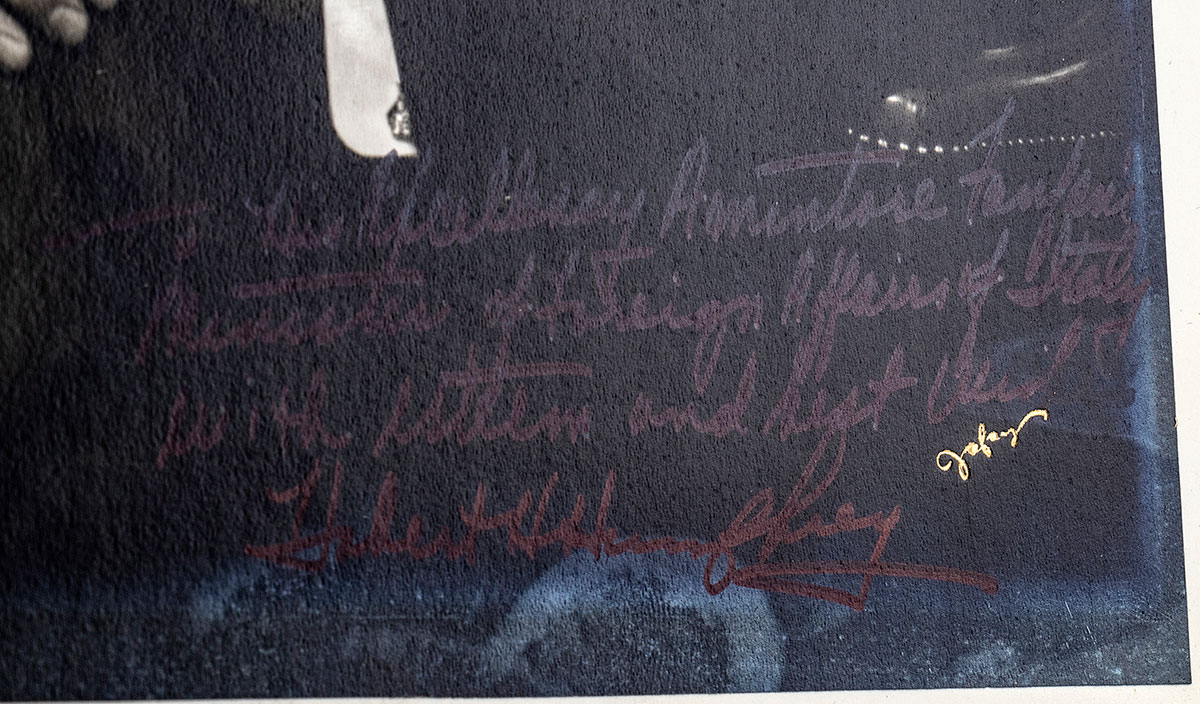 To his Excellency Amintore Fanfani
Minister of Foreign Affairs of Italy
with esteem and best
Hubert H Humphrey